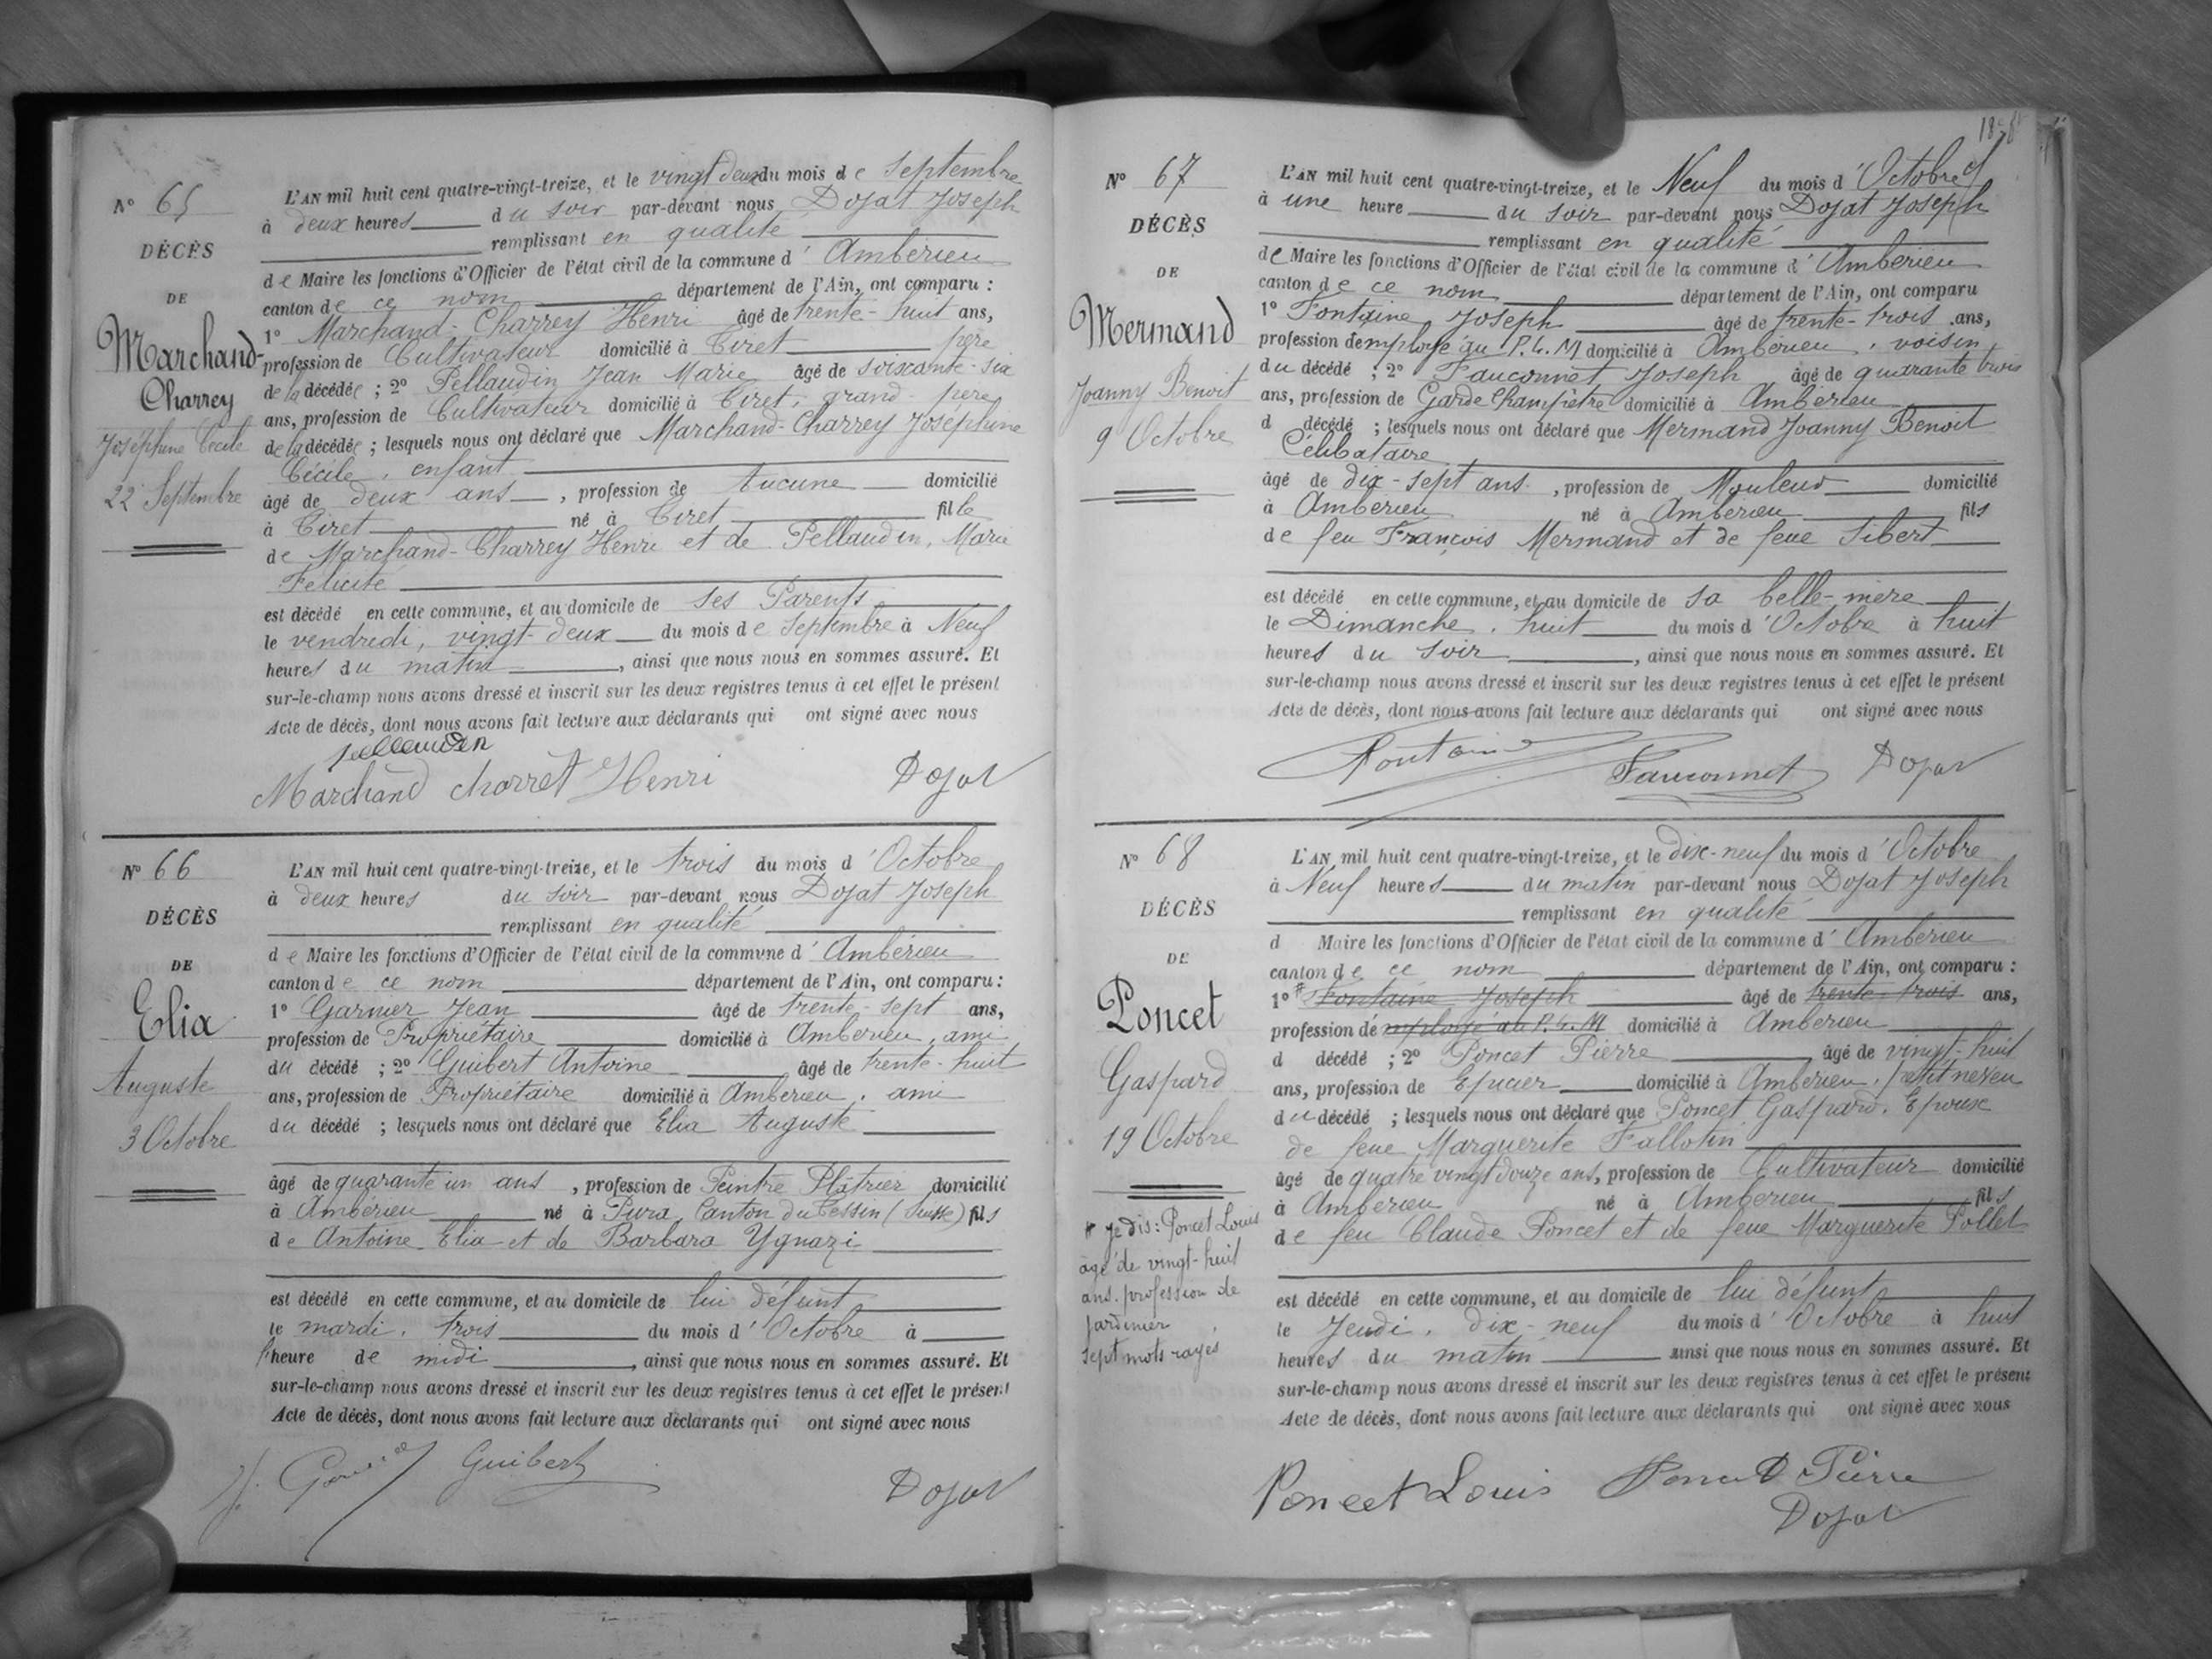 N° 65
DÉCÈS
DE
Marchand-
Charrey
Joséphine Cécile
22 Septembre
L'AN mil huit cent quatre-vingt-treize, et le vingt deux du mois de Septembre
à deux heures du soir par-devant nous Dojat Joseph
remplissant en qualité
de Maire les fonctions d'Officier de l'état civil de la commune d'Ambérieu
canton de ce nom département de l'Ain, ont comparu :
1° Marchand-Charrey Henri âgé de trente-huit ans,
profession de Cultivateur domicilié à Tiret père
de la décédée ; 2° Pellaudin Jean Marie âgé de soixante-six
ans, profession de Cultivateur domicilié à Tiret, grand-père
de la décédée ; lesquels nous ont déclaré que Marchand-Charrey Joséphine
Cécile, enfant
âgé de deux ans, profession de Aucune domicilié
à Tiret né à Tiret fille
de Marchand-Charrey Henri et de Pellaudin, Marie
Félicité
est décédé en cette commune, et au domicile de ses Parents
le vendredi, vingt-deux du mois de Septembre à Neuf
heures du matin, ainsi que nous nous en sommes assuré. Et
sur-le-champ nous avons dressé et inscrit sur les deux registres tenus à cet effet le présent
Acte de décès, dont nous avons fait lecture aux déclarants qui ont signé avec nous
pellaudin
Marchand charret Henri Dojat
N° 66
DÉCÈS
DE
Elia
Auguste
3 Octobre
L'AN mil huit cent quatre-vingt-treize, et le trois du mois d'Octobre
à deux heures du soir par-devant nous Dojat Joseph
remplissant en qualité
de Maire les fonctions d'Officier de l'état civil de la commune d'Ambérieu
canton de ce nom département de l'Ain, ont comparu :
1° Garnier Jean âgé de trente-sept ans,
profession de Propriétaire domicilié à Ambérieu, ami
du décédé ; 2° Guibert Antoine âgé de trente-huit
ans, profession de Propriétaire domicilié à Ambérieu, ami
du décédé ; lesquels nous ont déclaré que Elia Auguste
âgé de quarante un ans, profession de Peintre Plâtrier domicilié
à Ambérieu né à Pura, Canton du Tessin (Suisse) fils
de Antoine Elia et de Barbara Ygnazi
est décédé en cette commune, et au domicile de lui défunt
le mardi, trois du mois d'Octobre à
l'heure de midi, ainsi que nous nous en sommes assuré. Et
sur-le-champ nous avons dressé et inscrit sur les deux registres tenus à cet effet le présent
Acte de décès, dont nous avons fait lecture aux déclarants qui ont signé avec nous
Guibert Dojat
N° 67
DÉCÈS
DE
Mermand
Joanny Benoit
9 Octobre
L'AN mil huit cent quatre-vingt-treize, et le Neuf du mois d'Octobre
à une heure du soir par-devant nous Dojat Joseph
remplissant en qualité
de Maire les fonctions d'Officier de l'état civil de la commune d'Ambérieu
canton de ce nom département de l'Ain, ont comparu
1° Fontaine Joseph âgé de trente-trois ans,
profession d'employé au P.L.M domicilié à Ambérieu, voisin
du décédé ; 2° Fauconnet Joseph âgé de quarante trois
ans, profession de Garde Champêtre domicilié à Ambérieu
d décédé ; lesquels nous ont déclaré que Mermand Joanny Benoit
Célibataire
âgé de dix-sept ans, profession de Mouleur domicilié
à Ambérieu né à Ambérieu fils
de feu François Mermand et de feue Sibert
est décédé en cette commune, et au domicile de sa belle-mère
le Dimanche, huit du mois d'Octobre à huit
heures du soir, ainsi que nous nous en sommes assuré. Et
sur-le-champ nous avons dressé et inscrit sur les deux registres tenus à cet effet le présent
Acte de décès, dont nous avons fait lecture aux déclarants qui ont signé avec nous
Fontaine Fauconnet Dojat
N° 68
DÉCÈS
DE
Poncet
Gaspard
19 Octobre
# Je dis: Poncet Louis
âgé de vingt-huit
ans. profession de
jardinier
sept mots rayés
L'AN mil huit cent quatre-vingt-treize, et le dix-neuf du mois d'Octobre
à Neuf heures du matin par-devant nous Dojat Joseph
remplissant en qualité
d Maire les fonctions d'Officier de l'état civil de la commune d'Ambérieu
canton de ce nom département de l'Ain, ont comparu :
1° # Fontaine Joseph âgé de trente-trois ans,
profession d'employé au P.L.M domicilié à Ambérieu
d décédé ; 2° Poncet Pierre âgé de vingt-huit
ans, profession de Epicier domicilié à Ambérieu, petit neveu
du décédé ; lesquels nous ont déclaré que Poncet Gaspard, Epouse
de feue Marguerite Fallotin
âgé de quatre vingt douze ans, profession de Cultivateur domicilié
à Ambérieu né à Ambérieu fils
de feu Claude Poncet et de feue Marguerite Pollet
est décédé en cette commune, et au domicile de lui défunt
le Jeudi, dix-neuf du mois d'Octobre à huit
heures du matin ainsi que nous nous en sommes assuré. Et
sur-le-champ nous avons dressé et inscrit sur les deux registres tenus à cet effet le présent
Acte de décès, dont nous avons fait lecture aux déclarants qui ont signé avec nous
Poncet Louis Poncet Pierre
Dojat